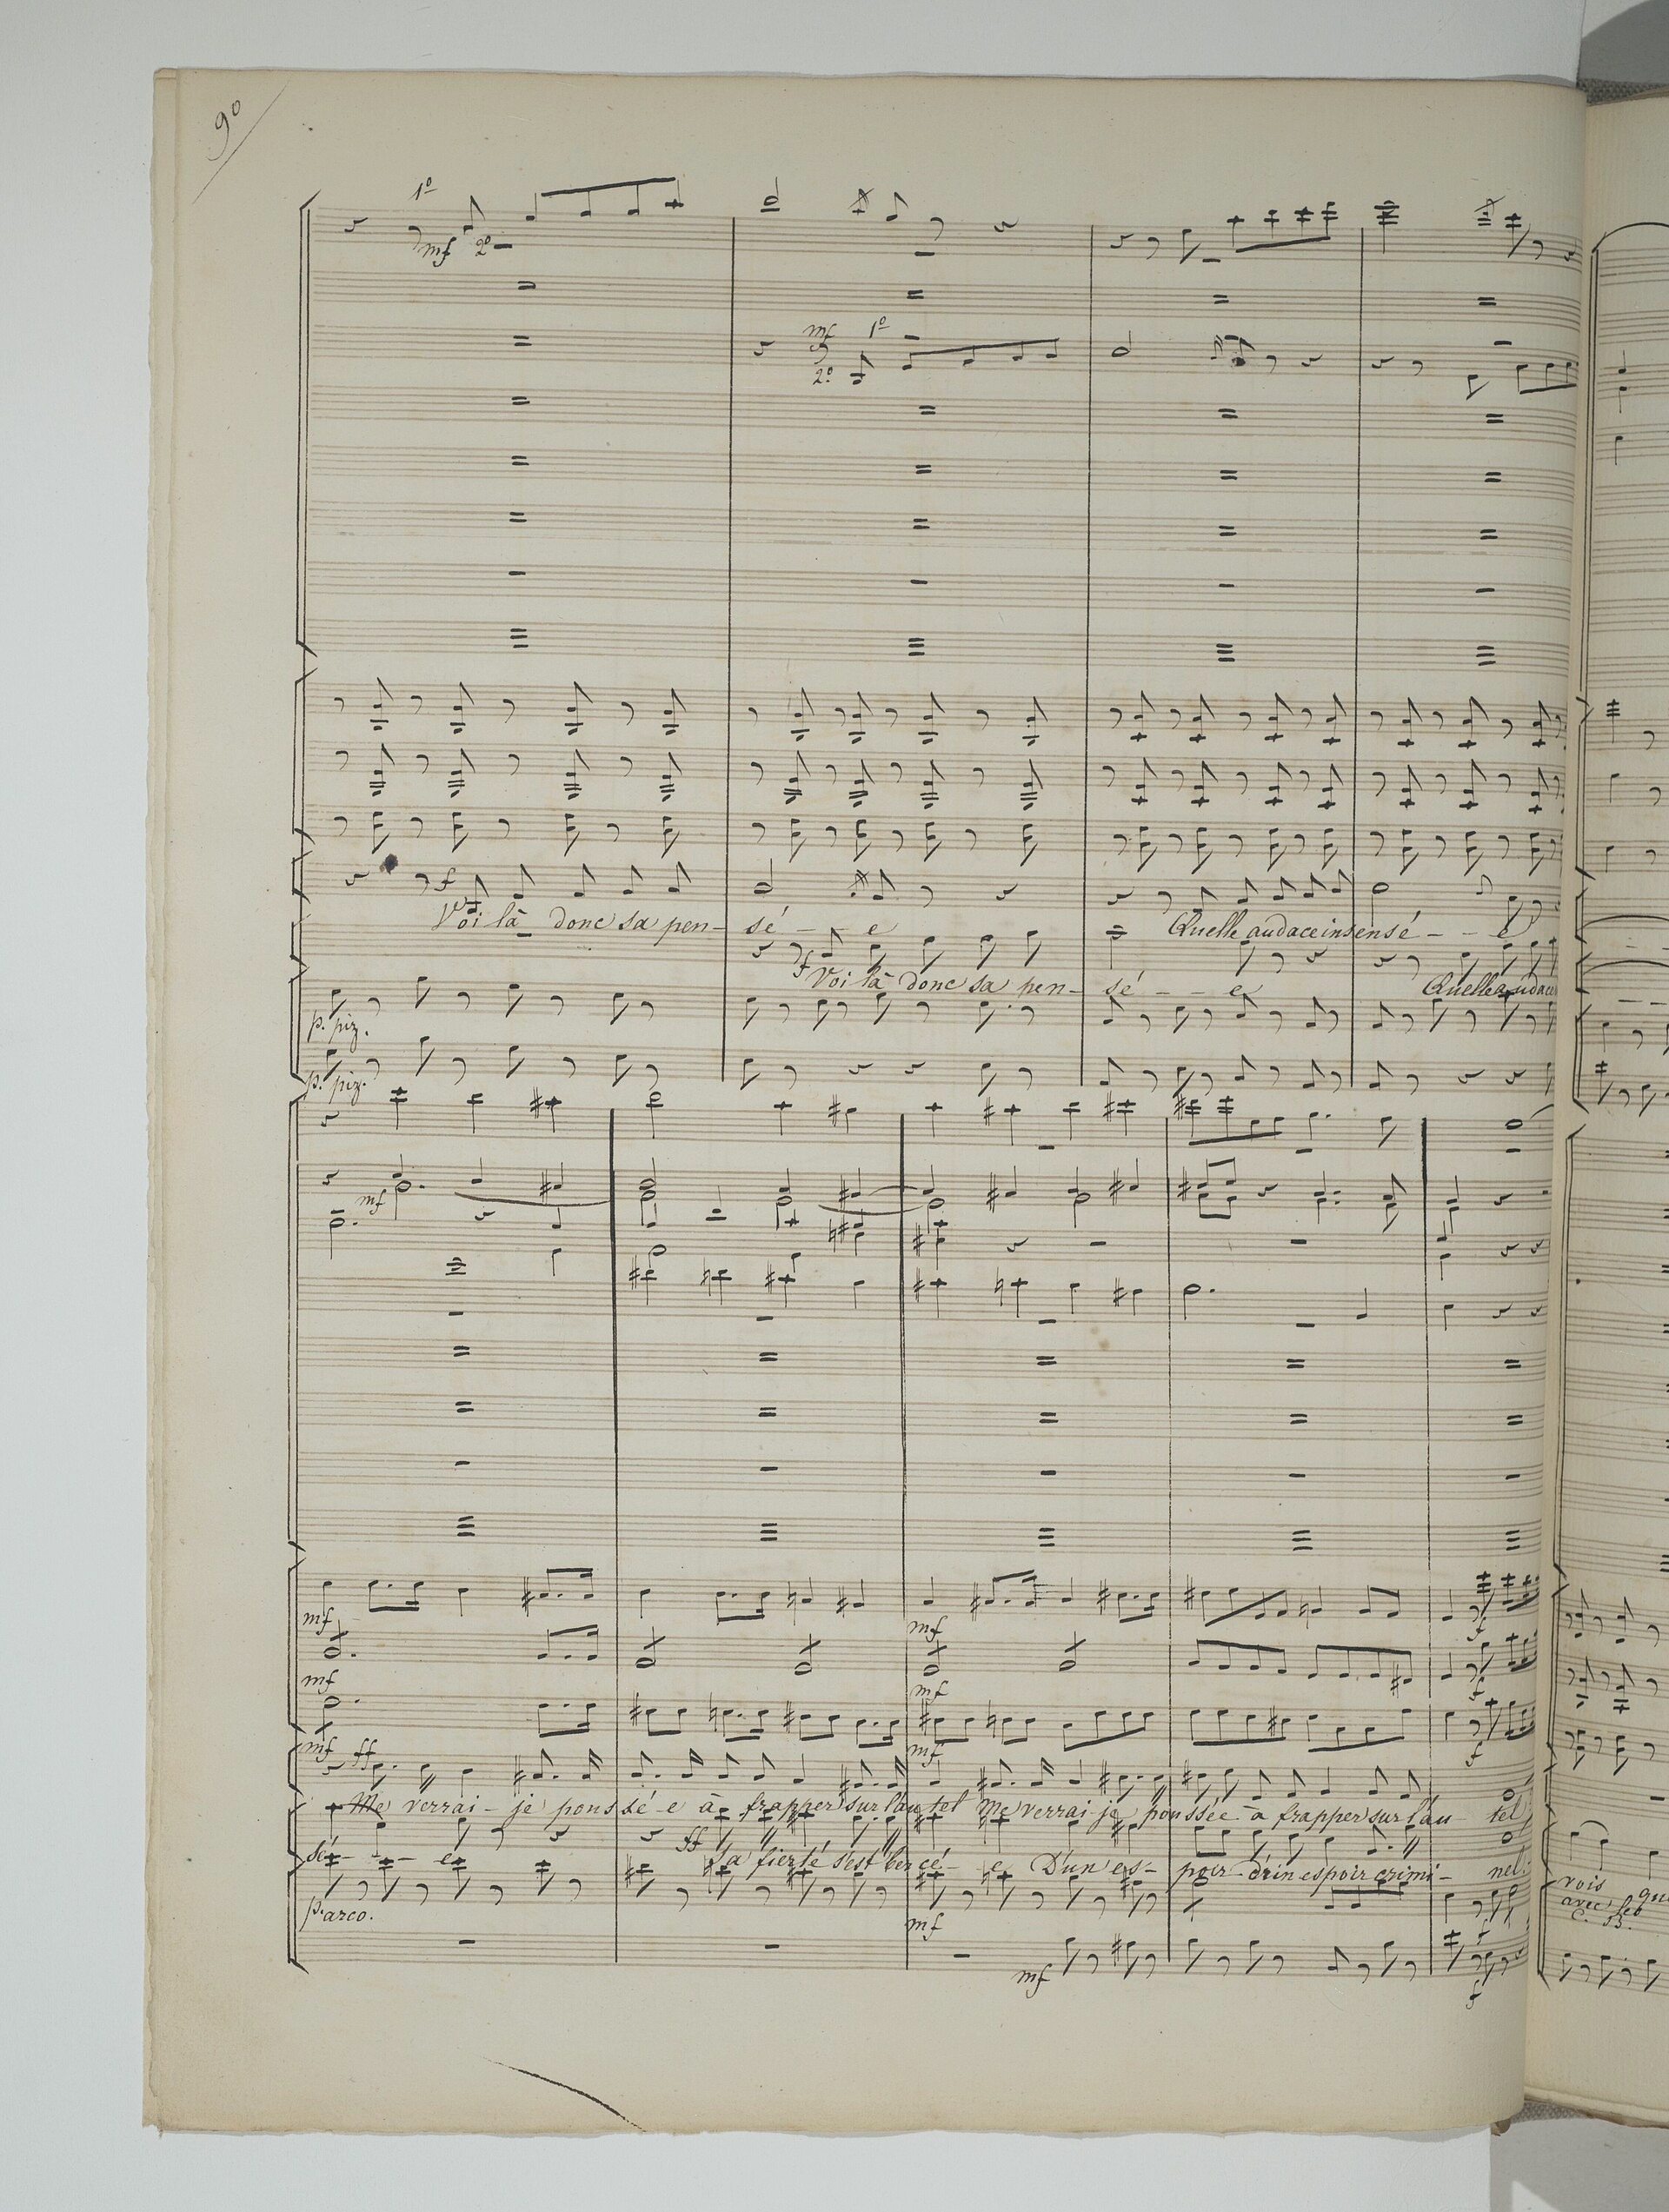 90
1º
mf 2º
mf 1º
2º
f
Voi là donc sa pen- sé - - e Quelle audace insensé - - e
f
Voi là donc sa pen- sé - - e Quelle audace
p. piz.
p. piz.
mf
mf mf
mf f
mf mf
f
mf ff mf
f
Me verrai - je pous sé - e à frapper sur l'au tel Me verrai - je poussée à frapper sur l'au tel
ff
sé - - e Sa fierté s'est ber cé - e D'un es - poir d'un espoir crimi - nel.
p. arco.
mf f
mf
f
vois que
avec les
C. B.